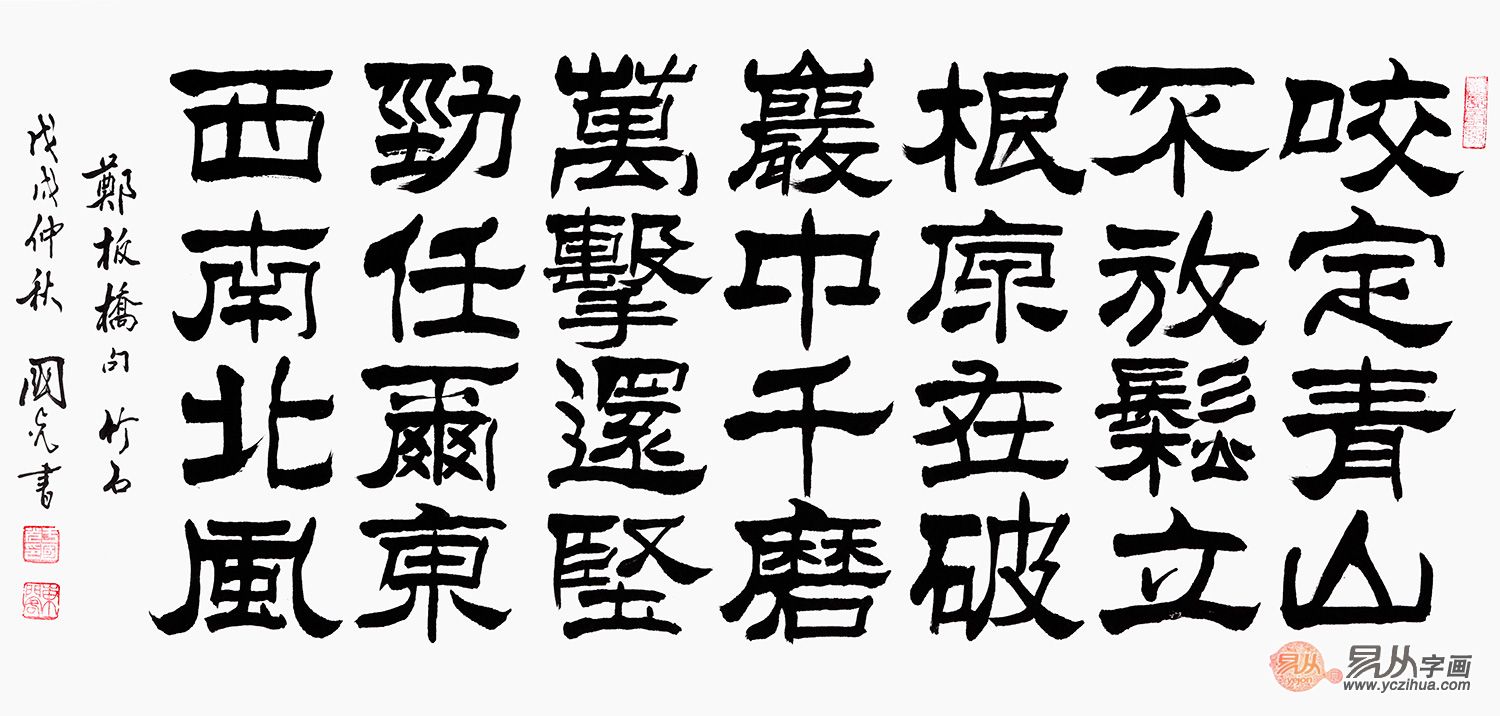 咬定青山
不放鬆立
根原在破
巖中千磨
萬擊還堅
勁任爾東
西南北風
鄭板橋句 竹石
戊戌仲秋 國亮書
易从
易从字画
www.yczihua.com